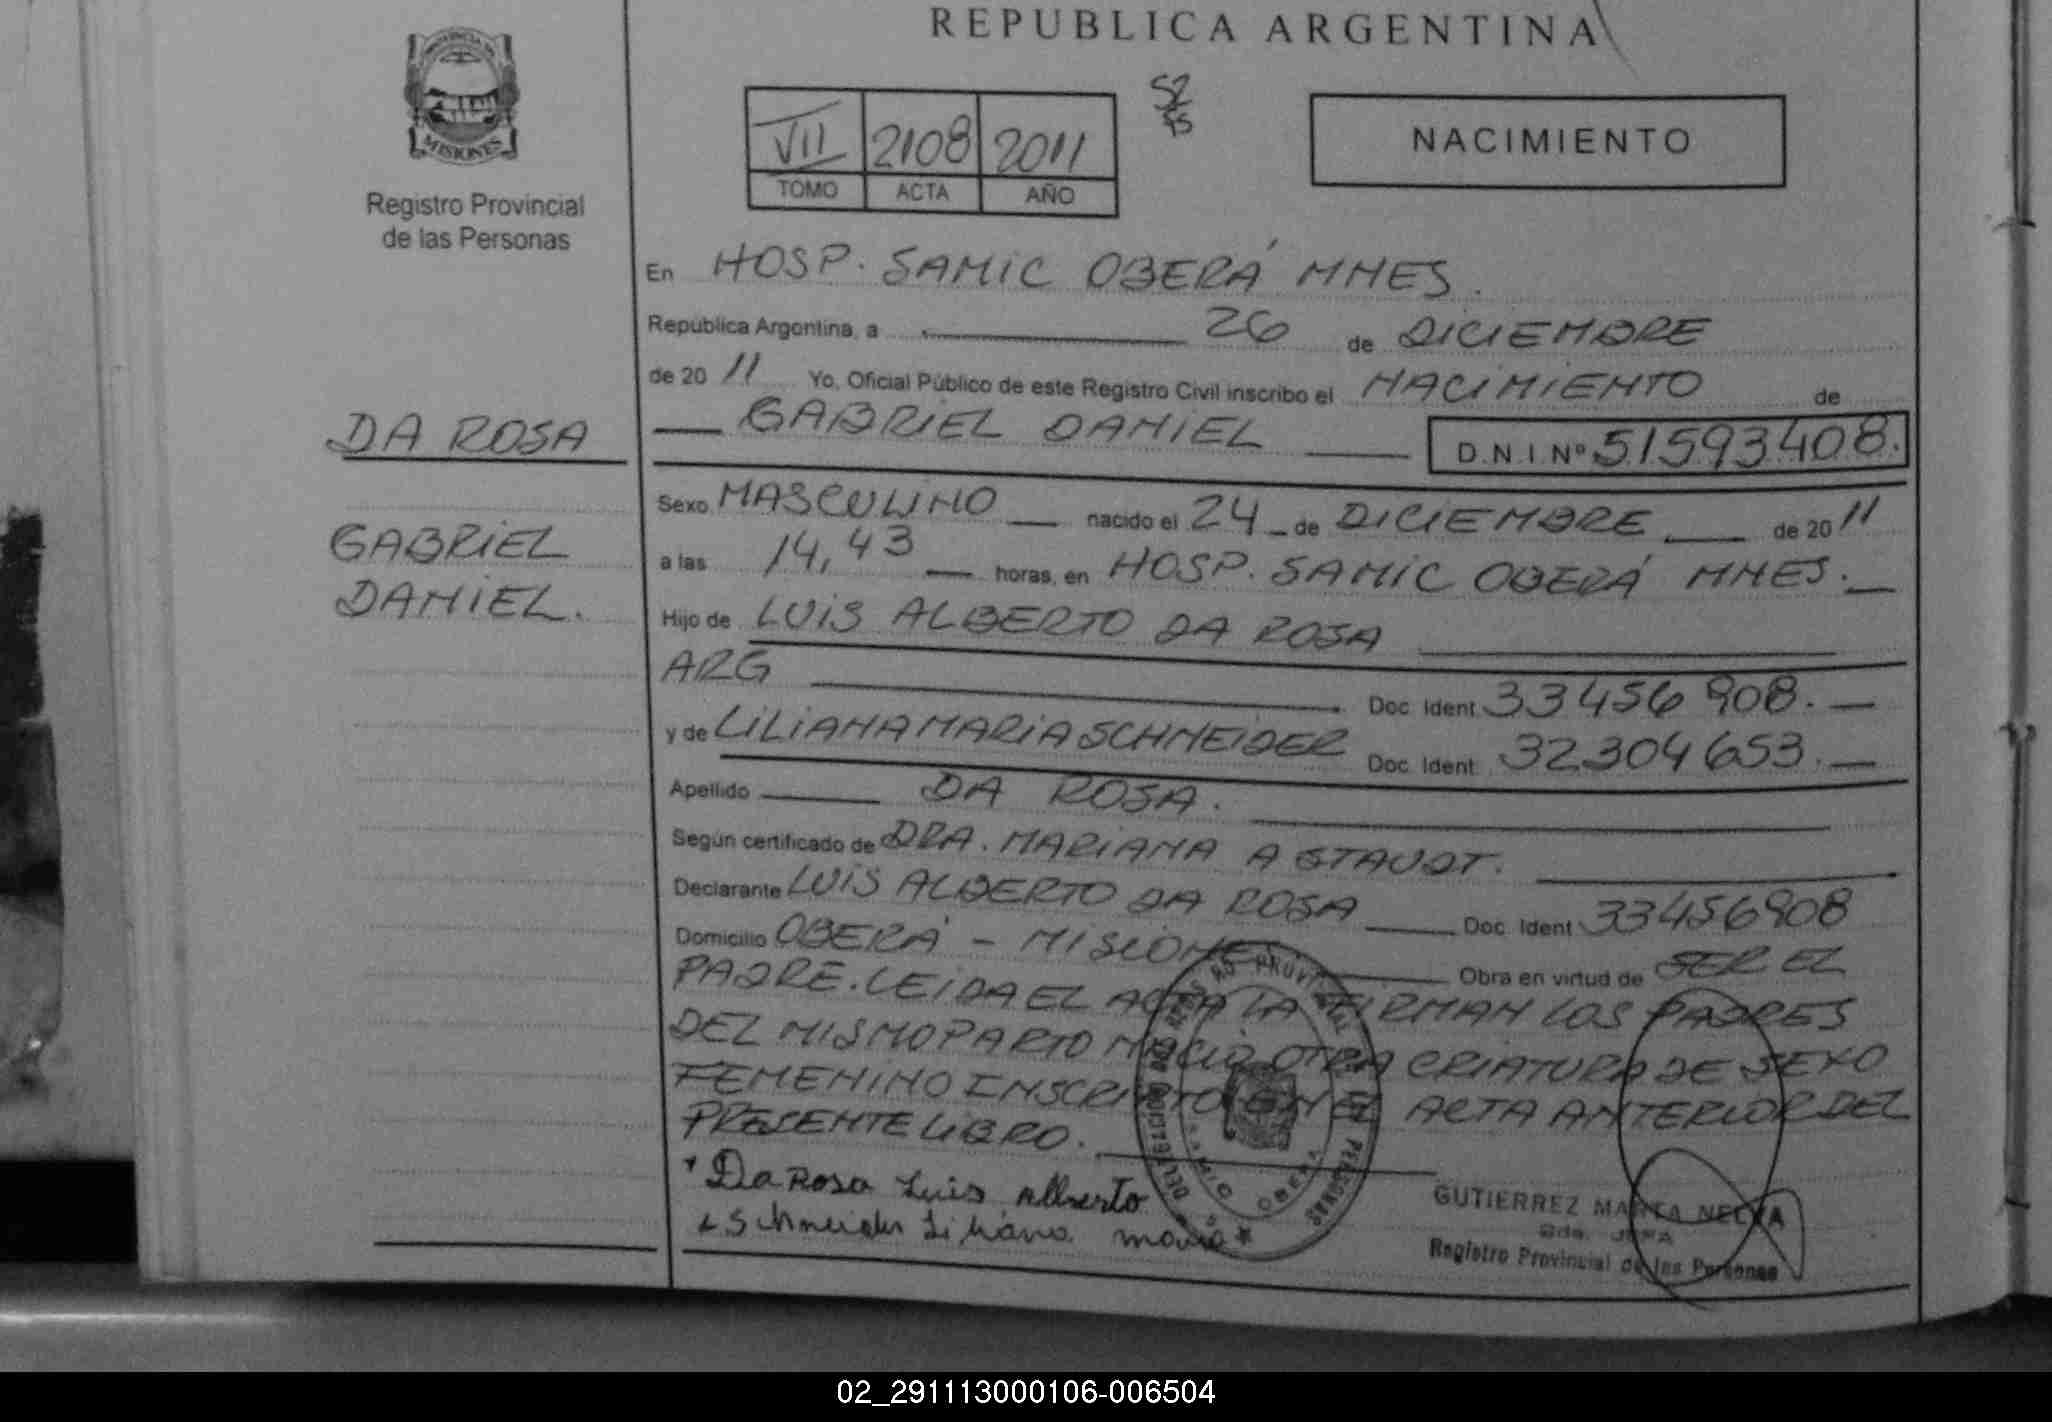 REPUBLICA ARGENTINA
PROVINCIA DE
MISIONES
Registro Provincial
de las Personas
VII 2108 2011
TOMO ACTA AÑO
NACIMIENTO
En HOSP. SAMIC OBERÁ MNES.
República Argentina, a 26 de DICIEMBRE
de 20 11 Yo, Oficial Público de este Registro Civil inscribo el NACIMIENTO de
DA ROSA
GABRIEL DANIEL D.N.I. Nº 51593408.
GABRIEL
DANIEL.
Sexo MASCULINO nacido el 24 de DICIEMBRE de 20 11
a las 14,43 horas, en HOSP. SAMIC OBERÁ MNES.
Hijo de LUIS ALBERTO DA ROSA
ARG Doc. Ident. 33456908.
y de LILIANA MARIA SCHNEIDER Doc. Ident. 32304653.
Apellido DA ROSA.
Según certificado de DRA. MARIANA A STAUDT.
Declarante LUIS ALBERTO DA ROSA Doc. Ident. 33456908
Domicilio OBERÁ - MISIONES Obra en virtud de SER EL
PADRE. LEIDA EL ACTA LA FIRMAN LOS PADRES
DEL MISMO PARTO NACIO OTRA CRIATURA DE SEXO
FEMENINO INSCRIPTO EN EL ACTA ANTERIOR DEL
PRESENTE LIBRO.
Da Rosa Luis Alberto
Schneider Liliana maria
GUTIERREZ MARTA NELVA
JEFA
Registro Provincial de las Personas
02_291113000106-006504